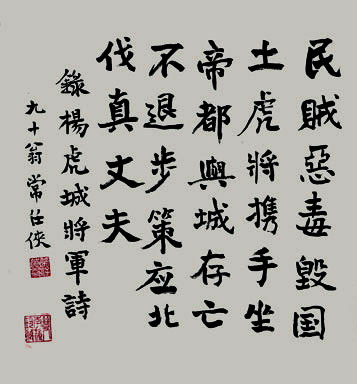 民賊惡毒毀国
土虎將携手坐
帝都與城存亡
不退步策应北
伐真丈夫
錄楊虎城將軍詩
九十翁常任俠